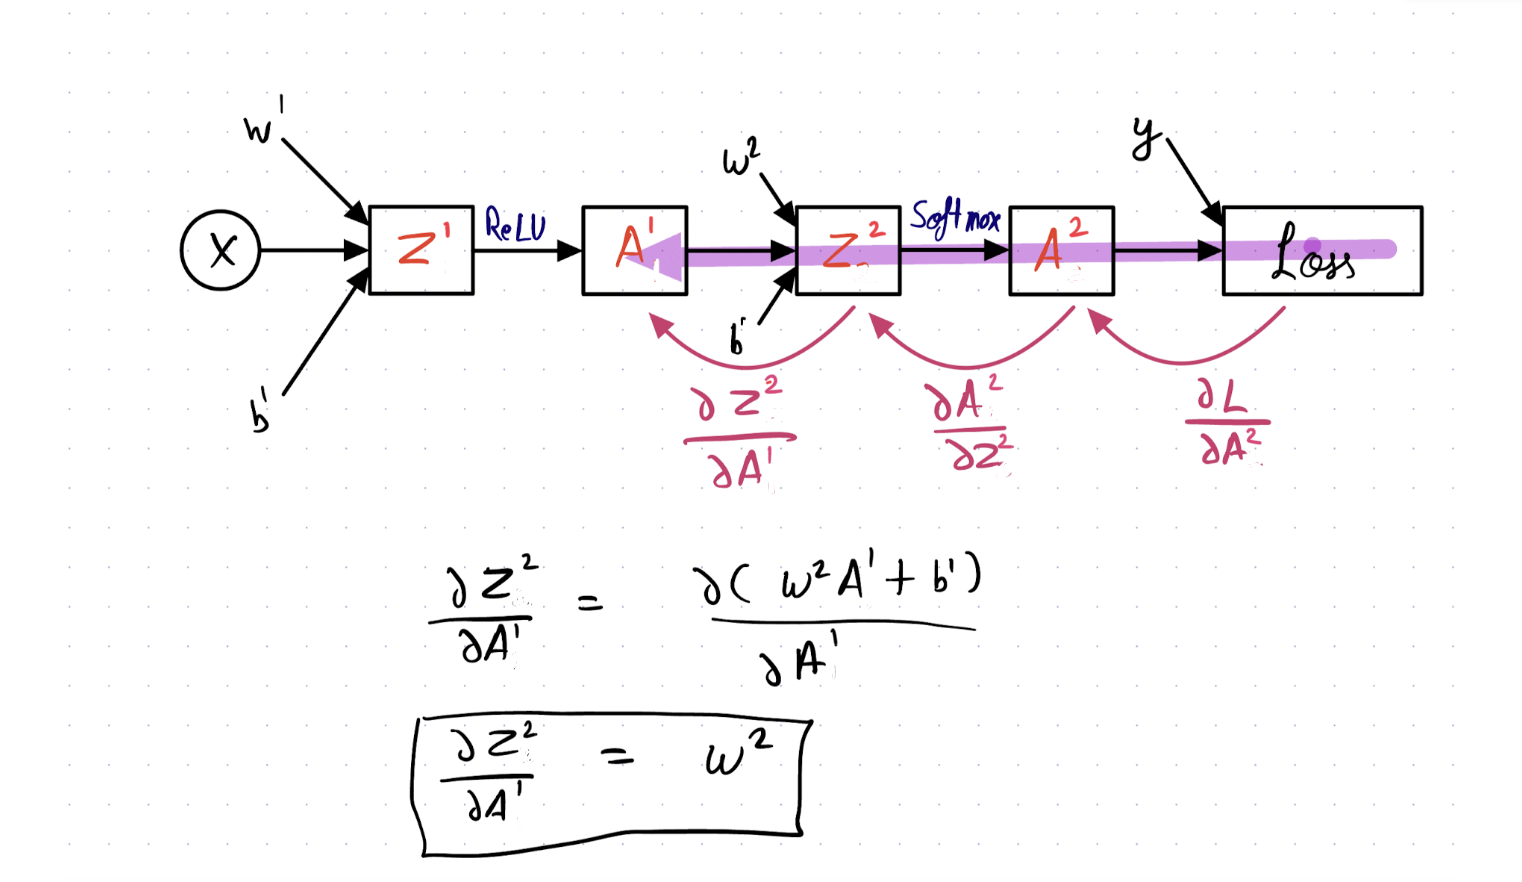 w¹
w²
y
X
Z¹
ReLU
A¹
Z²
Softmax
A²
Loss
b'
b'
∂Z²/∂A¹
∂A²/∂Z²
∂L/∂A²
∂Z²/∂A¹ = ∂(w²A¹ + b')/∂A¹
∂Z²/∂A¹ = w²